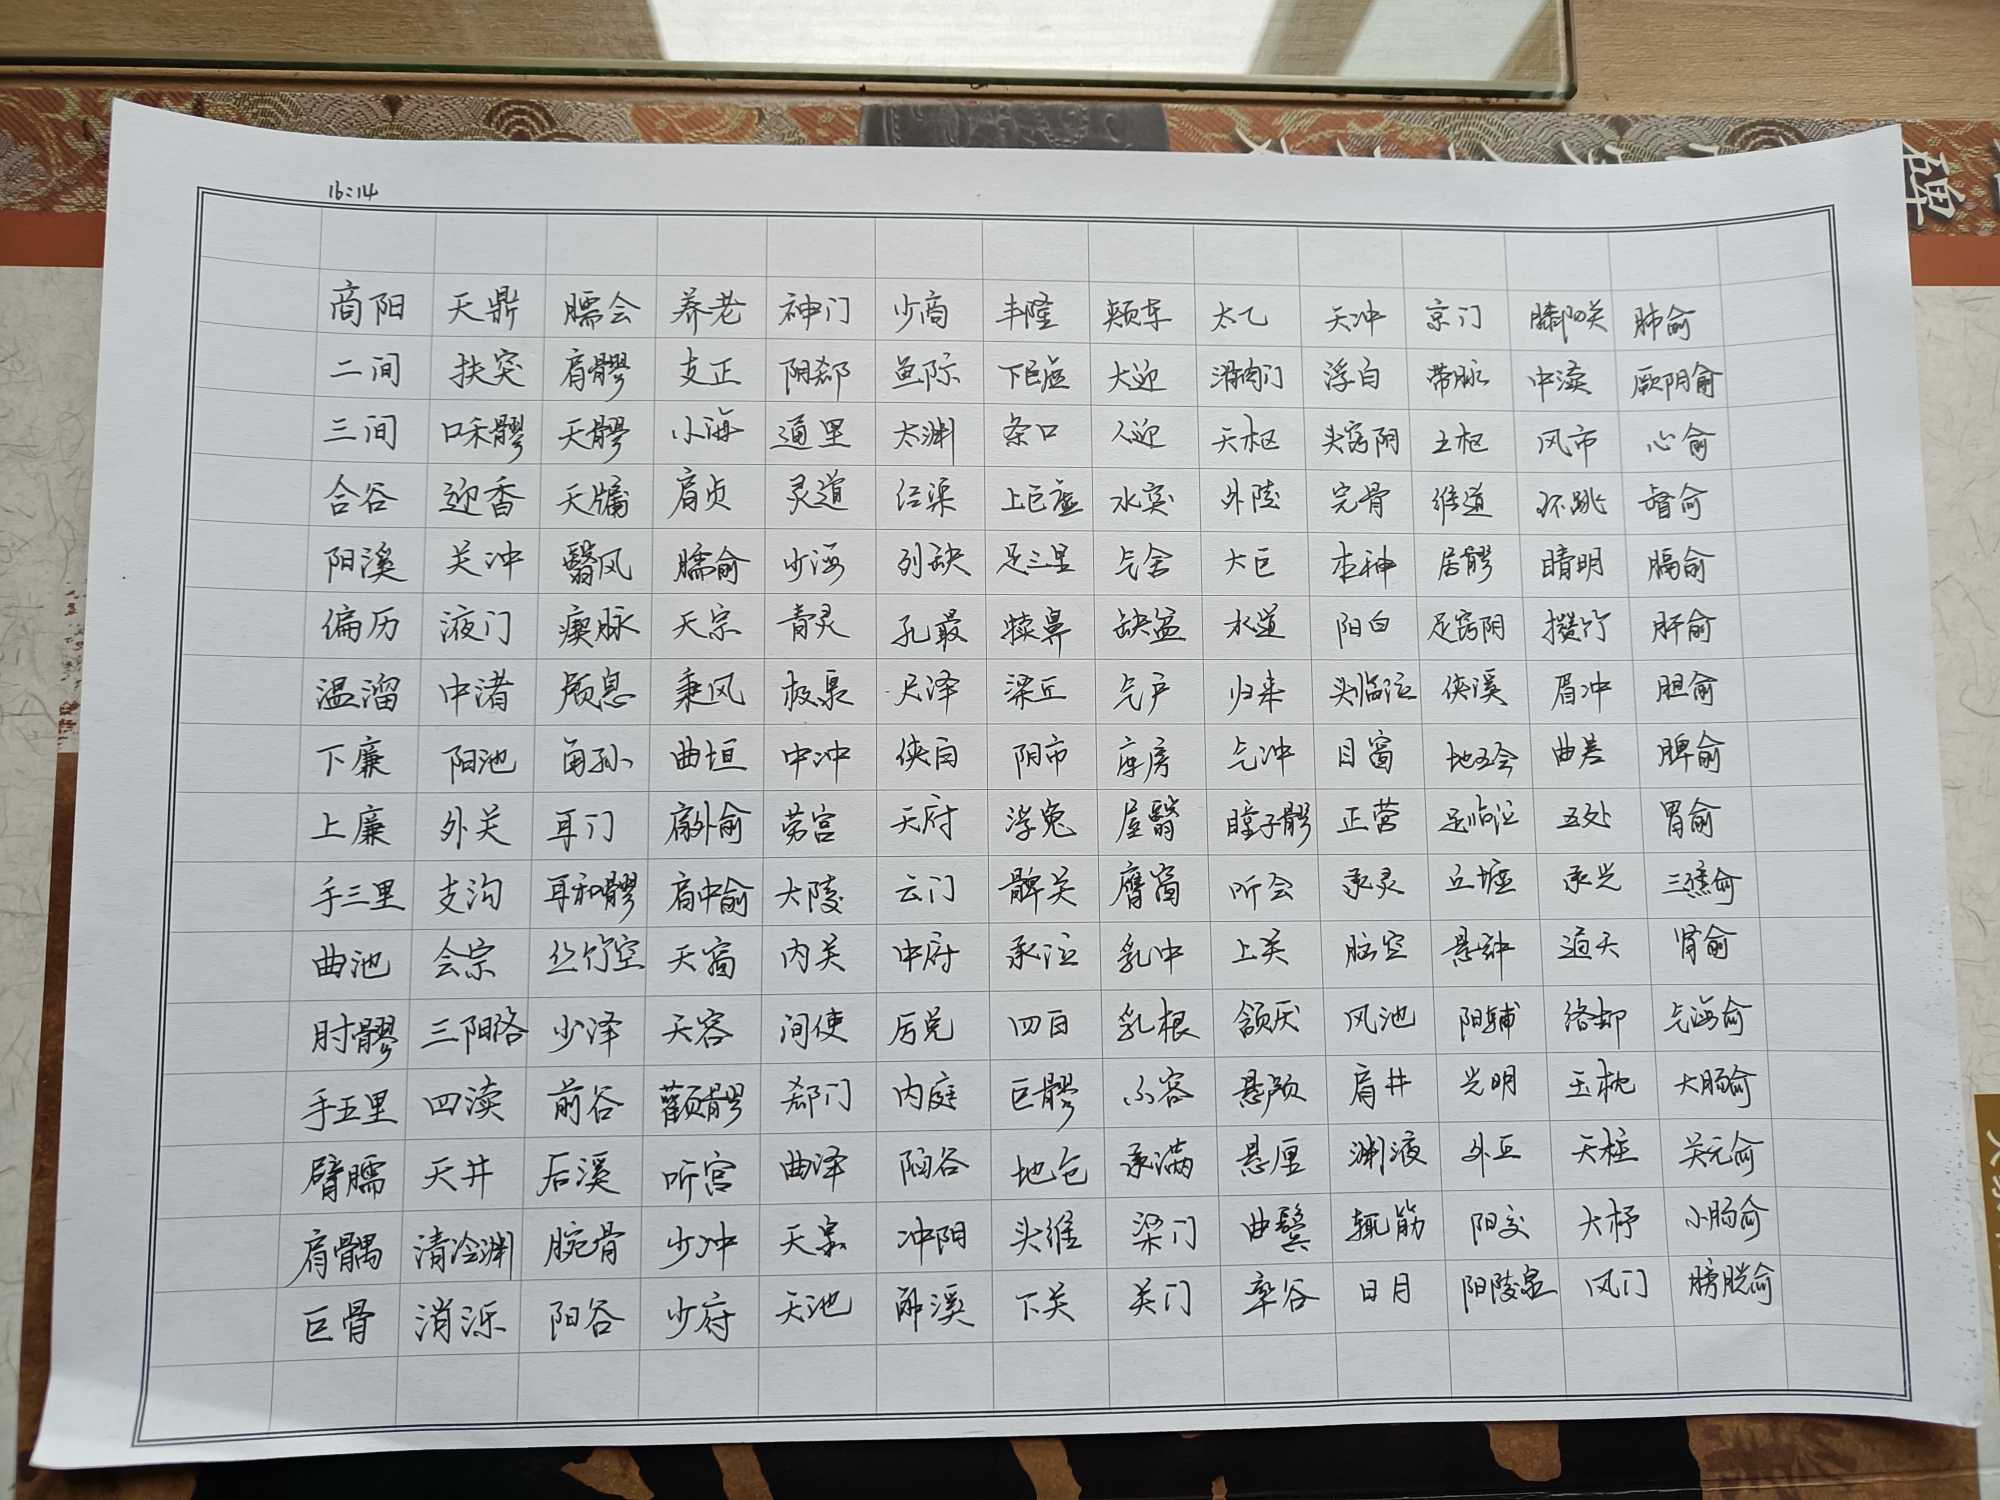 16:14
商阳 天鼎 臑会 养老 神门 少商 丰隆 颊车 太乙 天冲 京门 膝阳关 肺俞
二间 扶突 肩髎 支正 阴郄 鱼际 下巨虚 大迎 滑肉门 浮白 带脉 中渎 厥阴俞
三间 口禾髎 天髎 小海 通里 太渊 条口 人迎 天枢 头窍阴 五枢 风市 心俞
合谷 迎香 天牖 肩贞 灵道 经渠 上巨虚 水突 外陵 完骨 维道 环跳 督俞
阳溪 关冲 翳风 臑俞 少海 列缺 足三里 气舍 大巨 本神 居髎 睛明 膈俞
偏历 液门 瘈脉 天宗 青灵 孔最 犊鼻 缺盆 水道 阳白 足窍阴 攒竹 肝俞
温溜 中渚 颅息 秉风 极泉 尺泽 梁丘 气户 归来 头临泣 侠溪 眉冲 胆俞
下廉 阳池 角孙 曲垣 中冲 侠白 阴市 库房 气冲 目窗 地五会 曲差 脾俞
上廉 外关 耳门 肩外俞 劳宫 天府 浮兔 屋翳 瞳子髎 正营 足临泣 五处 胃俞
手三里 支沟 耳和髎 肩中俞 大陵 云门 髀关 膺窗 听会 承灵 丘墟 承光 三焦俞
曲池 会宗 丝竹空 天窗 内关 中府 承泣 乳中 上关 脑空 悬钟 通天 肾俞
肘髎 三阳络 少泽 天容 间使 厉兑 四白 乳根 颔厌 风池 阳辅 络却 气海俞
手五里 四渎 前谷 颧髎 郄门 内庭 巨髎 不容 悬颅 肩井 光明 玉枕 大肠俞
臂臑 天井 后溪 听宫 曲泽 陷谷 地仓 承满 悬厘 渊液 外丘 天柱 关元俞
肩髃 清冷渊 腕骨 少冲 天泉 冲阳 头维 梁门 曲鬓 辄筋 阳交 大杼 小肠俞
巨骨 消泺 阳谷 少府 天池 解溪 下关 关门 率谷 日月 阳陵泉 风门 膀胱俞
碑